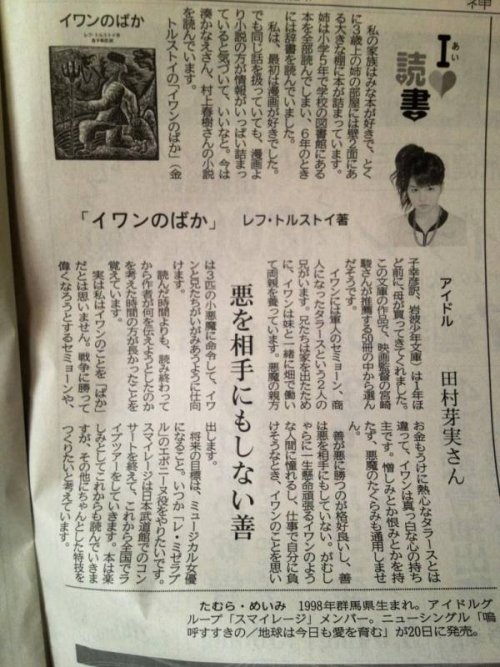 神
I♥読書
あい
私の家族はみな本が好きで、とく
に3歳上の姉の部屋には壁2面にあ
る大きな棚に本が詰まっています。
姉は小学5年で学校の図書館にある
本を全部読んでしまい、6年のとき
には辞書を読んでいました。
私は、最初は漫画が好きでした。
でも同じ話を扱っていても、漫画よ
り小説の方が情報がいっぱい詰まっ
ていると気づいて、いいなと。今は
湊かなえさん、村上春樹さんの小説
を読んでいます。
トルストイの「イワンのばか」(金
イワンのばか
レフ・トルストイ作
金子幸彦訳
「イワンのばか」 レフ・トルストイ著
アイドル 田村芽実さん
子幸彦訳、岩波少年文庫)は1年ほ
ど前に、母が買ってきてくれました。
この文庫の作品で、映画監督の宮崎
駿さんが推薦する50冊の中から選ん
だそうです。
イワンには軍人のセミョーン、商
人になったタラースという2人の
兄がいます。兄たちは家を出たため
に、イワンは妹と一緒に畑で働い
て両親を養っています。悪魔の親方
は3匹の小悪魔に命令して、イワ
ンと兄たちがいがみあうように仕向
けます。
読んだ時間よりも、読み終わって
から作者が何を伝えようとしたのか
を考えた時間の方が長かったことを
覚えています。
実は私はイワンのことを「ばか」
だとは思いません。戦争に勝って
偉くなろうとするセミョーンや、
悪を相手にもしない善
お金もうけに熱心なタラースとは
違って、イワンは真っ白な心の持ち
主です。憎しみとか恨みとかを持
たず、悪魔のたくらみも通用しませ
ん。
善が悪に勝つのが格好良いし、善
は悪を相手にもしていない。がむし
ゃらに一生懸命頑張るイワンのよう
な人間に憧れるし、仕事で自分に負
けそうなとき、イワンのことを思い
出します。
将来の目標は、ミュージカル女優
になること。いつか「レ・ミゼラブ
ル」のエポニーヌ役をやりたいです。
スマイレージは日本武道館でのコン
サートを終えて、これから全国でラ
イブツアーをしていきます。本は楽
しみとしてこれからも読んでいきま
すが、その他にちゃんとした特技を
つくりたいと考えています。
たむら・めいみ 1998年群馬県生まれ。アイドルグ
ループ「スマイレージ」メンバー。ニューシングル「嗚
呼すすきの／地球は今日も愛を育む」が20日に発売。